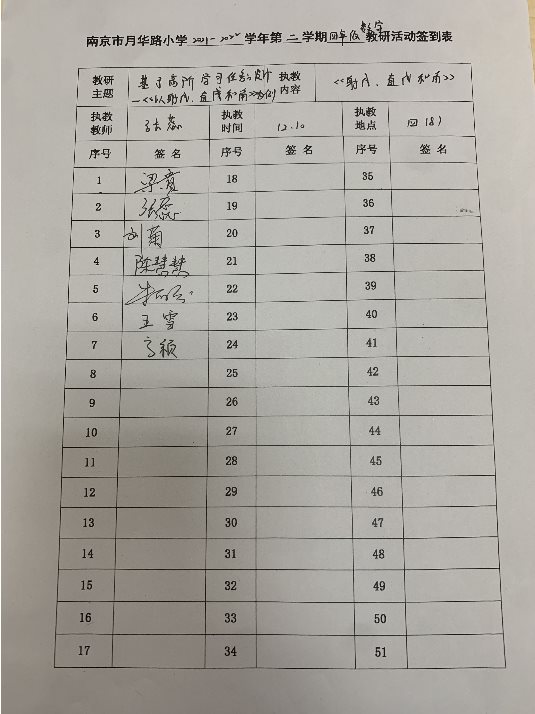 南京市月华路小学 2021-2022 学年第 二 学期 四年级 数学 教研活动签到表
教研主题 基于高阶学习任务设计 —《以射线、直线和角》为例 执教内容 《射线、直线和角》
执教教师 张蕊 执教时间 12.10 执教地点 四(8)
序号 签名 序号 签名 序号 签名
1 梁 18 35
2 张蕊 19 36
3 刘菊 20 37
4 陈慧慧 21 38
5 22 39
6 王雪 23 40
7 方颖 24 41
8 25 42
9 26 43
10 27 44
11 28 45
12 29 46
13 30 47
14 31 48
15 32 49
16 33 50
17 34 51